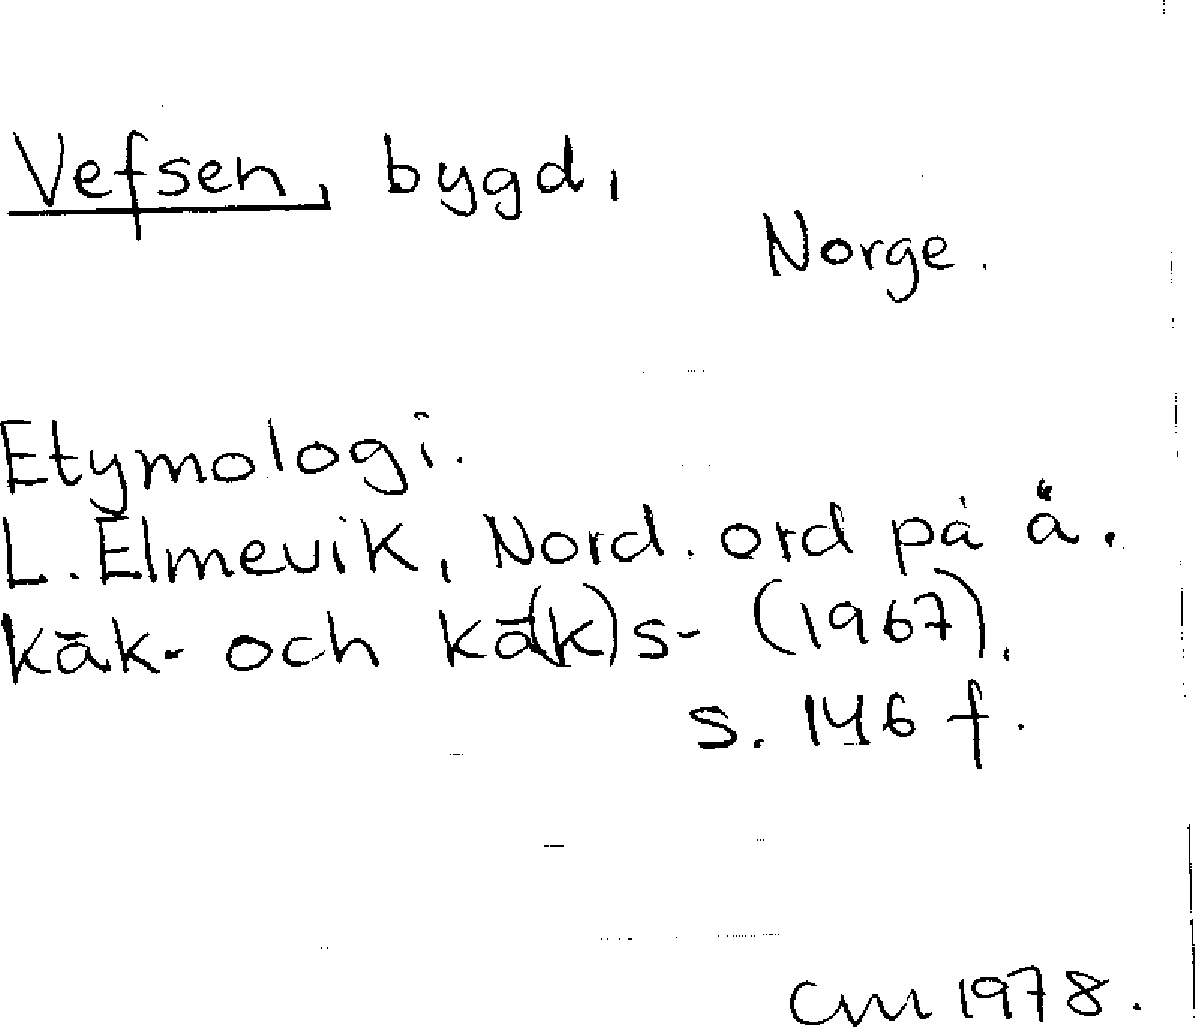 Vefsen, bygd,
Norge.
Etymologi.
L. Elmevik, Nord. ord på ä.
kāk- och kā(k)s- (1967).
s. 146 f.
CM 1978.